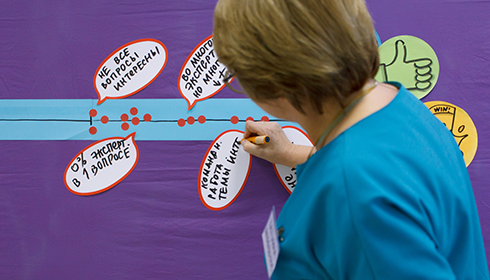 НЕ ВСЕ
ВОПРОСЫ
ИНТЕРЕСНЫ
ВО МНОГО
ЭКСПЕР
НО МНОГ
0% ЭКСПЕРТ
В 1 ВОПРОСЕ
КОМАНДН.
РАБОТА
ТЕМЫ ИНТЕ
WIN